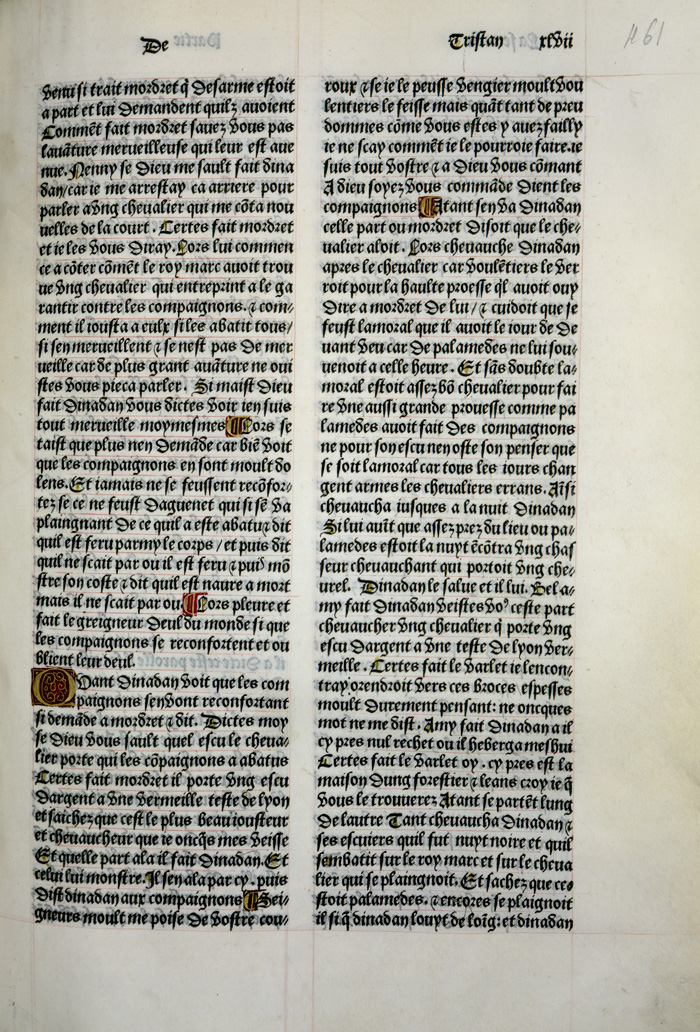 De
Tristan xlvii
461
venu si trait mordret q̃ desarme estoit
a part et lui demandent quilz auoient
Commẽt fait mordret sauez vous pas
lauãture merueilleuse qui leur est aue
nue. Nenny se dieu me sault fait dina
dan/car ie me arrestay ca arriere pour
parler a vng cheualier qui me cõta nou
uelles de la court. Certes fait mordret
et ie les vous diray. Lors lui commen
ce a cõter cõmẽt le roy marc auoit trou
ue vng cheualier qui entreprint a le ga
rantir contre les compaignons. ⁊ com-
ment il iousta a eulx si les abatit tous/
si sen merueillent ⁊ se nest pas de mer
ueille car de plus grant auãture ne oui
stes vous pieca parler. Si maist dieu
fait dinadan vous dictes voir ien suis
tout merueille moymesmes ¶ Lors se
taist que plus nen demãde car biẽ voit
que les compaignons en sont moult do
lens. Et iamais ne se feussent recõfor-
tez se ce ne feust daguenet qui si sẽ va
plaingnant de ce quil a este abatu ⁊ dit
quil est feru parmy le corps / et puis dit
quil ne scait par ou il est feru ⁊ puis mõ
stre son coste ⁊ dit quil est naure a mort
mais il ne scait par ou ¶ Lors pleure et
fait le greigneur deul du monde si que
les compaignons se reconfortent et ou
blient leur deul.
Quant dinadan voit que les com
paignons sen vont reconfortant
si demãde a mordret ⁊ dit. Dictes moy
se dieu vous sault quel escu le cheua-
lier porte qui les cõpaignons a abatus
Certes fait mordret il porte vng escu
dargent a vne vermeille teste de lyon
et saichez que cest le plus beau iousteur
et cheuaucheur que ie oncq̃s mes veisse
Et quelle part ala il fait dinadan. Et
celui lui monstre. Il sen ala par cy. puis
dist dinadan aux compaignons ¶ Sei-
gneurs moult me poise de vostre cou-
roux ⁊ se ie le peusse vengier moult vou
lentiers le feisse mais quãt tant de preu
dommes cõme vous estes y auez failly
ie ne scay commẽt ie le pourroie faire. ie
suis tout vostre ⁊ a dieu vous cõmant
A dieu soyez vous commãde dient les
compaignons ¶ Atant sen va dinadan
celle part ou mordret disoit que le che-
ualier aloit. Lors cheuauche dinadan
apres le cheualier car voulẽtiers le ver
roit pour la haulte proesse q̃l auoit ouy
dire a mordret de lui / ⁊ cuidoit que se
feust lamoral que il auoit le iour de de
uant veu car de palamedes ne lui sou-
uenoit a celle heure. Et sãs doubte la-
moral estoit assez bõ cheualier pour fai
re vne aussi grande prouesse comme pa
lamedes auoit fait des compaignons
ne pour son escu nen oste son penser que
se soit lamoral car tous les iours chan
gent armes les cheualiers errans. Aĩsi
cheuaucha iusques a la nuit dinadan
Si lui auĩt que assez prez du lieu ou pa-
lamedes estoit la nuyt ẽcõtra vng chas
seur cheuauchant qui portoit vng che-
urel. Dinadan le salue et il lui. Bel a-
my fait dinadan veistes vo⁹ ceste part
cheuaucher vng cheualier q̃ porte vng
escu dargent a vne teste de lyon ver-
meille. Certes fait le varlet ie lencon-
tray orendroit vers ces broces espesses
moult durement pensant: ne oncques
mot ne me dist. Amy fait dinadan a il
cy pres nul rechet ou il heberga meshui
Certes fait le varlet oy. cy pres est la
maison dung forestier ⁊ leans croy ie q̃
vous le trouuerez Atant se partẽt lung
de lautre Tant cheuaucha dinadan ⁊
ses escuiers quil fut nuyt noire et quil
sembatit sur le roy marc et sur le cheua
lier qui se plaingnoit. Et sachez que ce-
stoit palamedes. ⁊ encores se plaignoit
il si q̃ dinadan louyt de loĩg: et dinadan